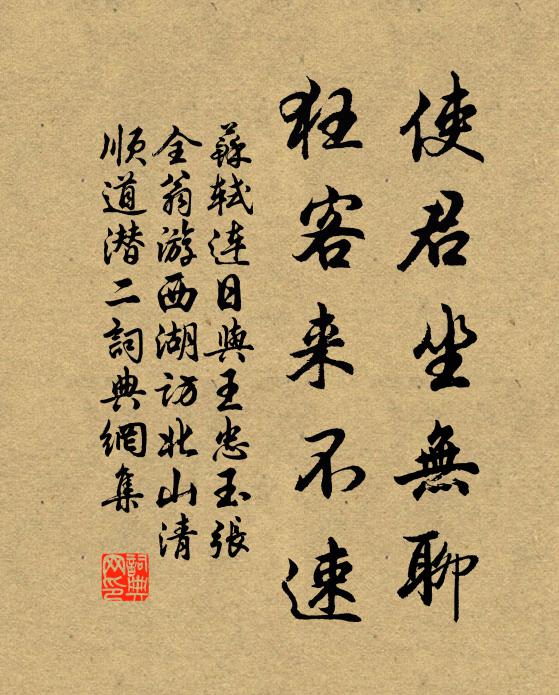 使君坐無聊
狂客来不速
蘇軾连日與王忠玉張
全翁游西湖访北山清
顺道潜二詞典網集
詞典网印